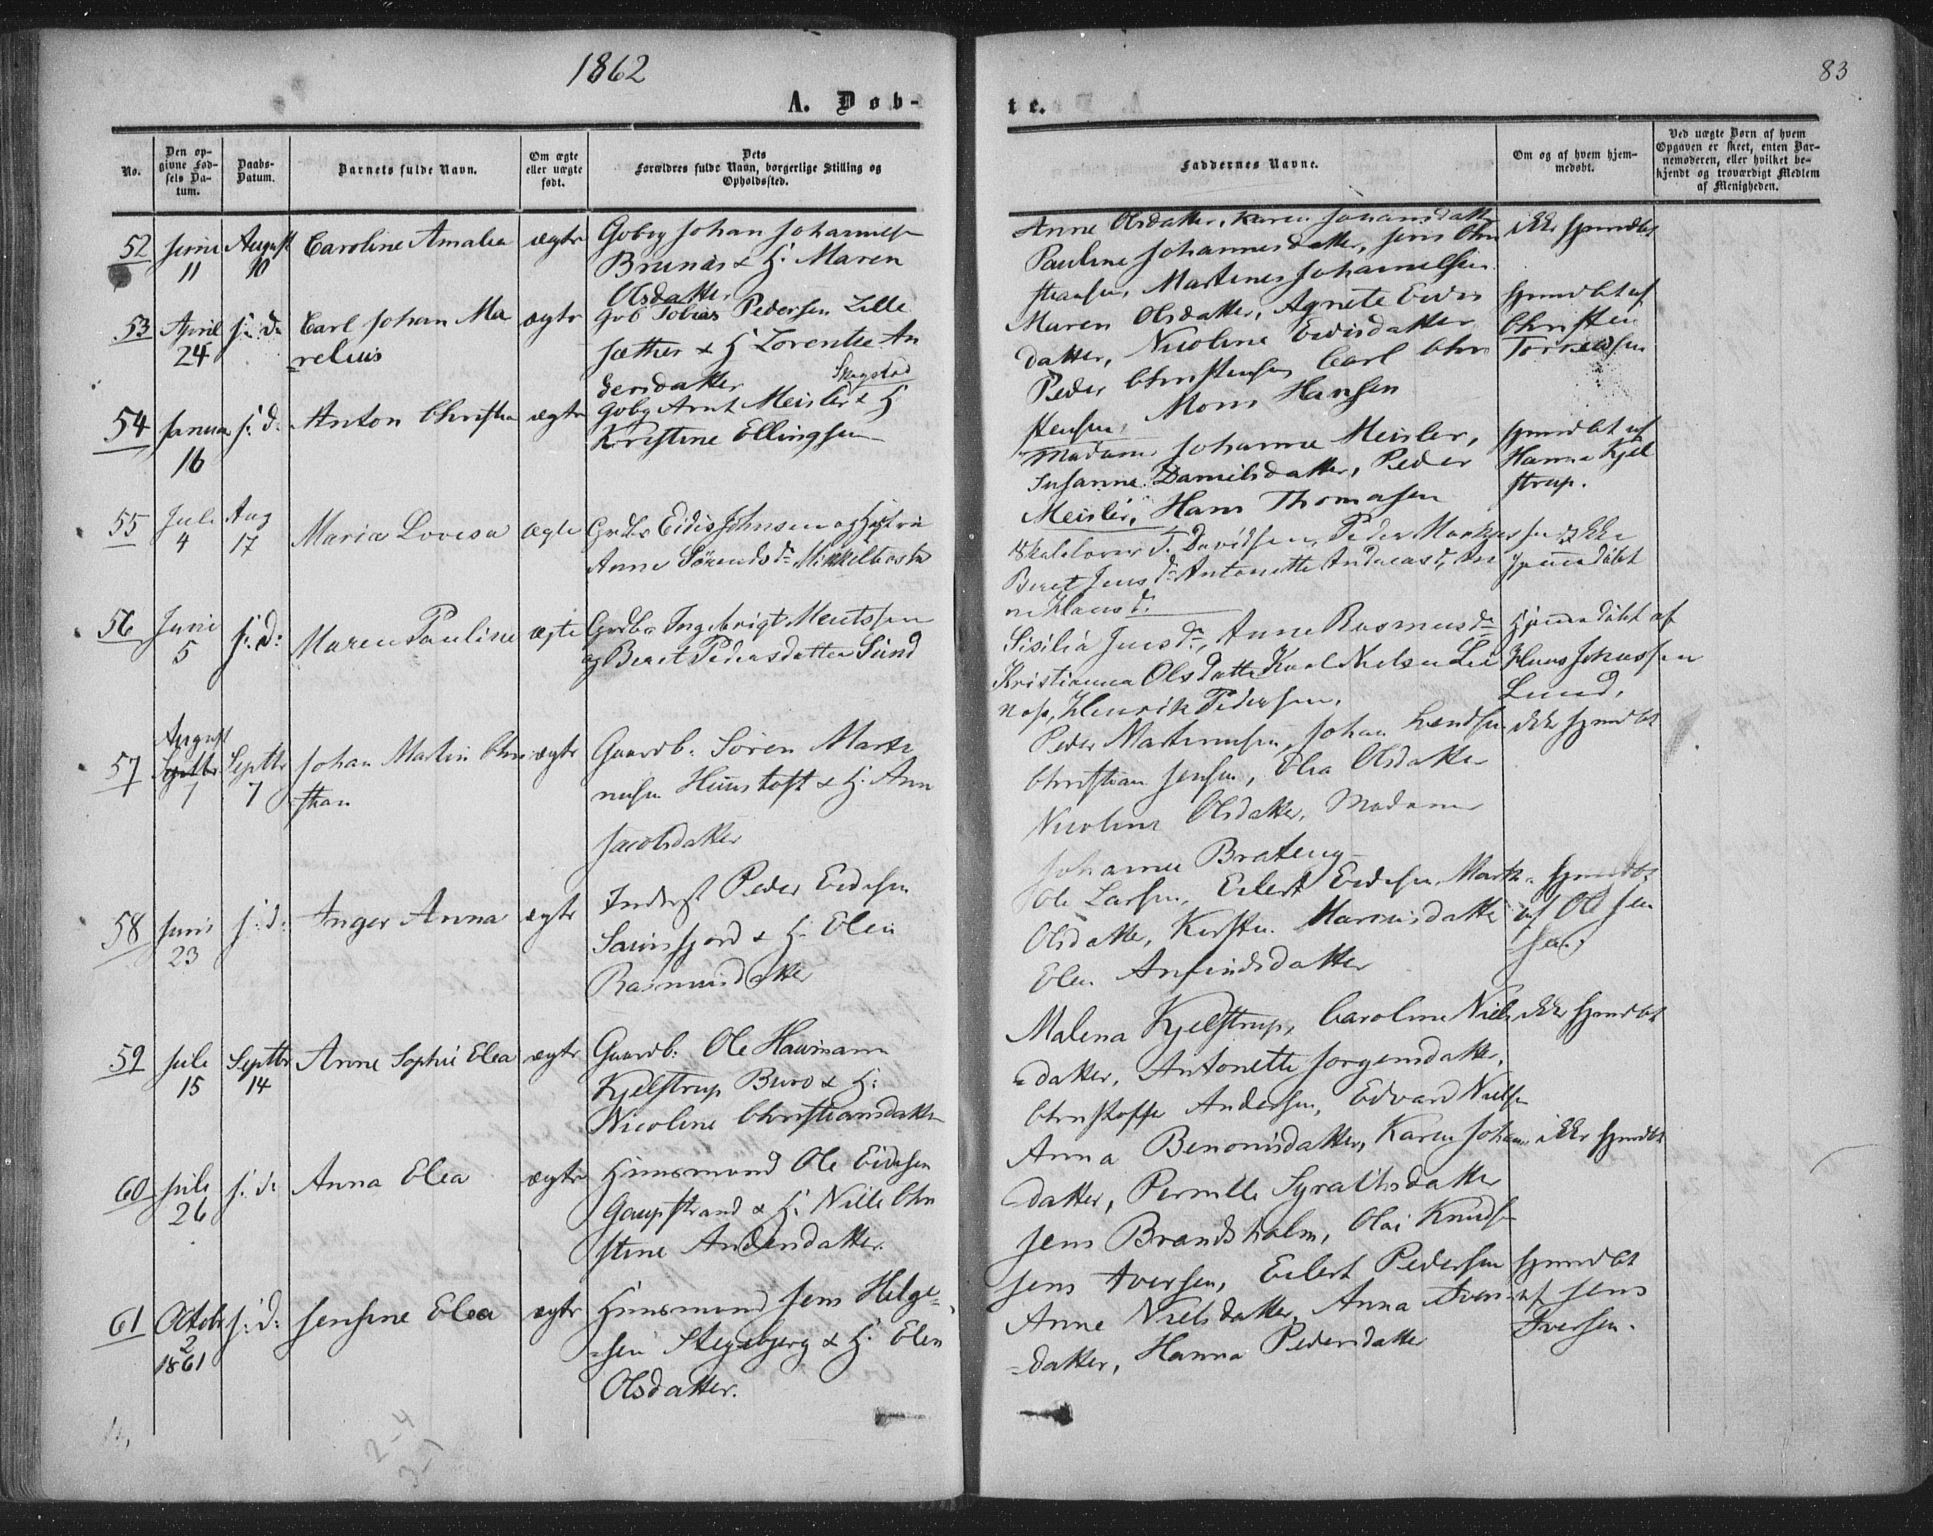 1862
83
A. Døb-
te.
No.
Den op-
givne Fød-
sels Da-
tum.
Daabs-
Datum.
Barnets fulde Navn.
Om ægte
eller uægte
født.
Dets
Forældres fulde Navn, borgerlige Stilling og
Opholdssted.
Faddernes Navne.
Om og af hvem hjem-
medøbt.
Ved uægte Børn af hvem
Opgaven er skeet, enten Bar-
nemoderen, eller hvilket be-
kjendt og troværdigt Medlem
af Menigheden.
52
Juni
11
August
10
Caroline Amalia
ægte
Gbbg Johan Johannes
Brunes & H: Maren
Olsdatter
Anne Olsdatter, Karen Johansdatter
Pauline Johannesdatter, Jens Chri
stiansen, Martines Johannessen
ikke hjemdbt
53
April
24
s: d:
Carl Johan Ma
relius
ægte
Gbb Tobias Pedersen Lille
sæther & H Lorentse An
dersdatter
Maren Olsdatter, Agnete Eidis
datter, Nicoline Eidisdatter
Peder Christensen Carl Chri
stensen, Mons Hansen
hjemdbt af
Christen
54
Janua
16
s: d:
Anton Christia
ægte
Skogstad
Gbbg Arnt Meisler & H
Kristine Ellingsen
Madam Johanna Meisler,
Susanne Danielsdatter, Peder
Meisler, Hans Thomasen
hjemdbt af
Hanna Kjel
strup.
55
Juli
4
Aug
17
Maria Lovisa
ægte
Grdbr Eidis Johnsen og Hustru
Anne Sørensdr
Skolelærer T. Davidsen, Peder Markus
sen, Ikke
Beret Jensdr Antonette Andreasdr, An
ne Hansdr
hjemmedøbt
56
Juni
5
s: d:
Maren Pauline
ægte
Grdbr Ingebrigt Mentssen
og Beret Pedersdatter Sund
Sisilia Jensdr, Anne Rasmusdr
Kristianna Olsdatter Karl Nielsen Lei
nes, Henrik Pedersen.
Hjemmedøbt af
Hans Johnssen
Lund.
57
August
Septbr
7
Septbr
7
Johan Martin Chri
stian
ægte
Gaardb: Søren Marti
nusen Hunstoft & H: Ann
Jacobsdatter
Peder Martinusen, Johan Lendsen
Christian Jensen, Elea Olsdatter
Nicoline Olsdatter, Madam
Johanne Brateng
ikke hjemdbt
58
Juni
23
s: d:
Inger Anna
ægte
Inderst Peder Eidissen
Saursfjord & H: Elen
Rasmusdatter
Ole Larsen, Eilert Eidisen Marth
Olsdatter, Kirsten Hansdatter
Elen Amundsdatter
hjemdbt
af Ole Jen
sen.
59
Juli
15
Septbr
14
Anne Sophie Elea
ægte
Gaardb: Ole Hausmann
Kjelstrup Buvo & H:
Nicoline Christiansdatter
Malena Kjelstrup, Caroline Niels
datter, Antonette Jørgensdatter,
Christoffer Andersen, Edvard Nielsen
ikke hjemdbt
60
Juli
26
s: d:
Anna Elea
ægte
Huusmand Ole Eidisen
Gaupstrand & H: Nille Chri
stine Andersdatter.
Anna Benonisdatter, Karen Johans
datter, Pernille Syraksdatter
Jens Brandsholm, Olai Knudsen
ikke hjemdbt
61
Octobr
2
1861
s: d:
Jensine Elea
ægte
Huusmand Jens Helge-
sen Stegebjerg & H: Elen
Olsdatter.
Jens Iversen, Eilert Pedersen
Anne Nielsdatter, Anna Ivers
datter, Hanna Pedersdatter
hjemdbt
af Jens
Iversen.
2-4
3-7